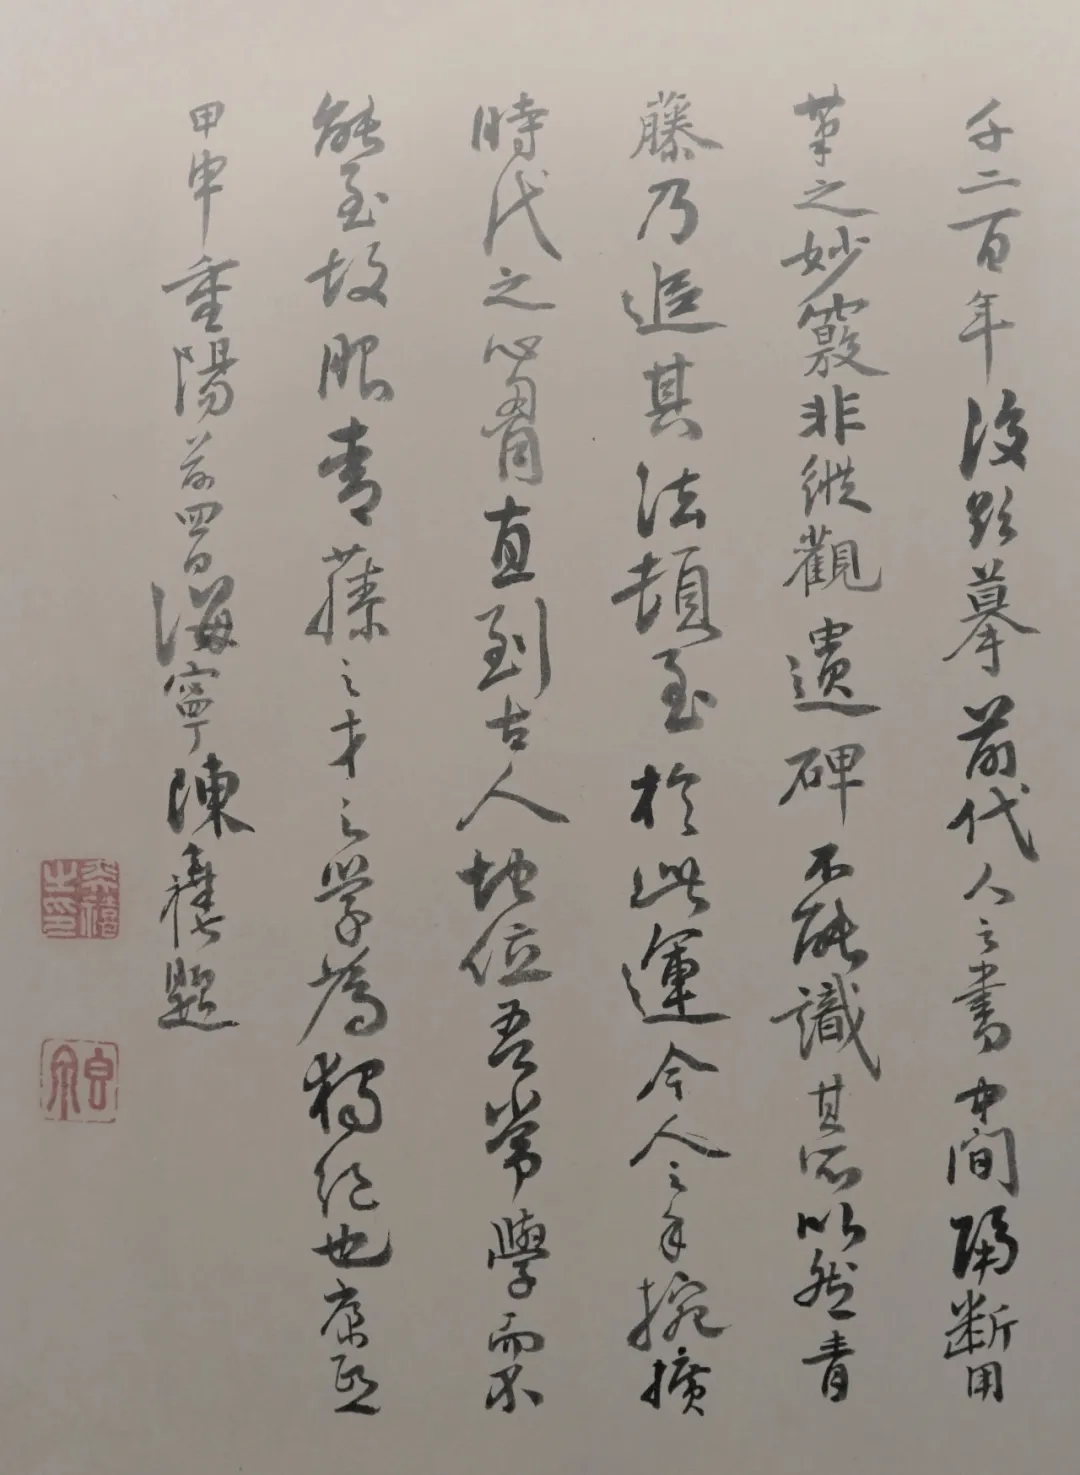 千二百年後欲摹前代人之書中間隔斷用
筆之妙竅非縱觀遺碑不能識其所以然青
藤乃追其法頓至於此運今人之手擴
時代之心胷直到古人地位吾常學而不
能至故服青藤之才之學為獨絕也康熙
甲申重陽前四日海寧陳奕禧題